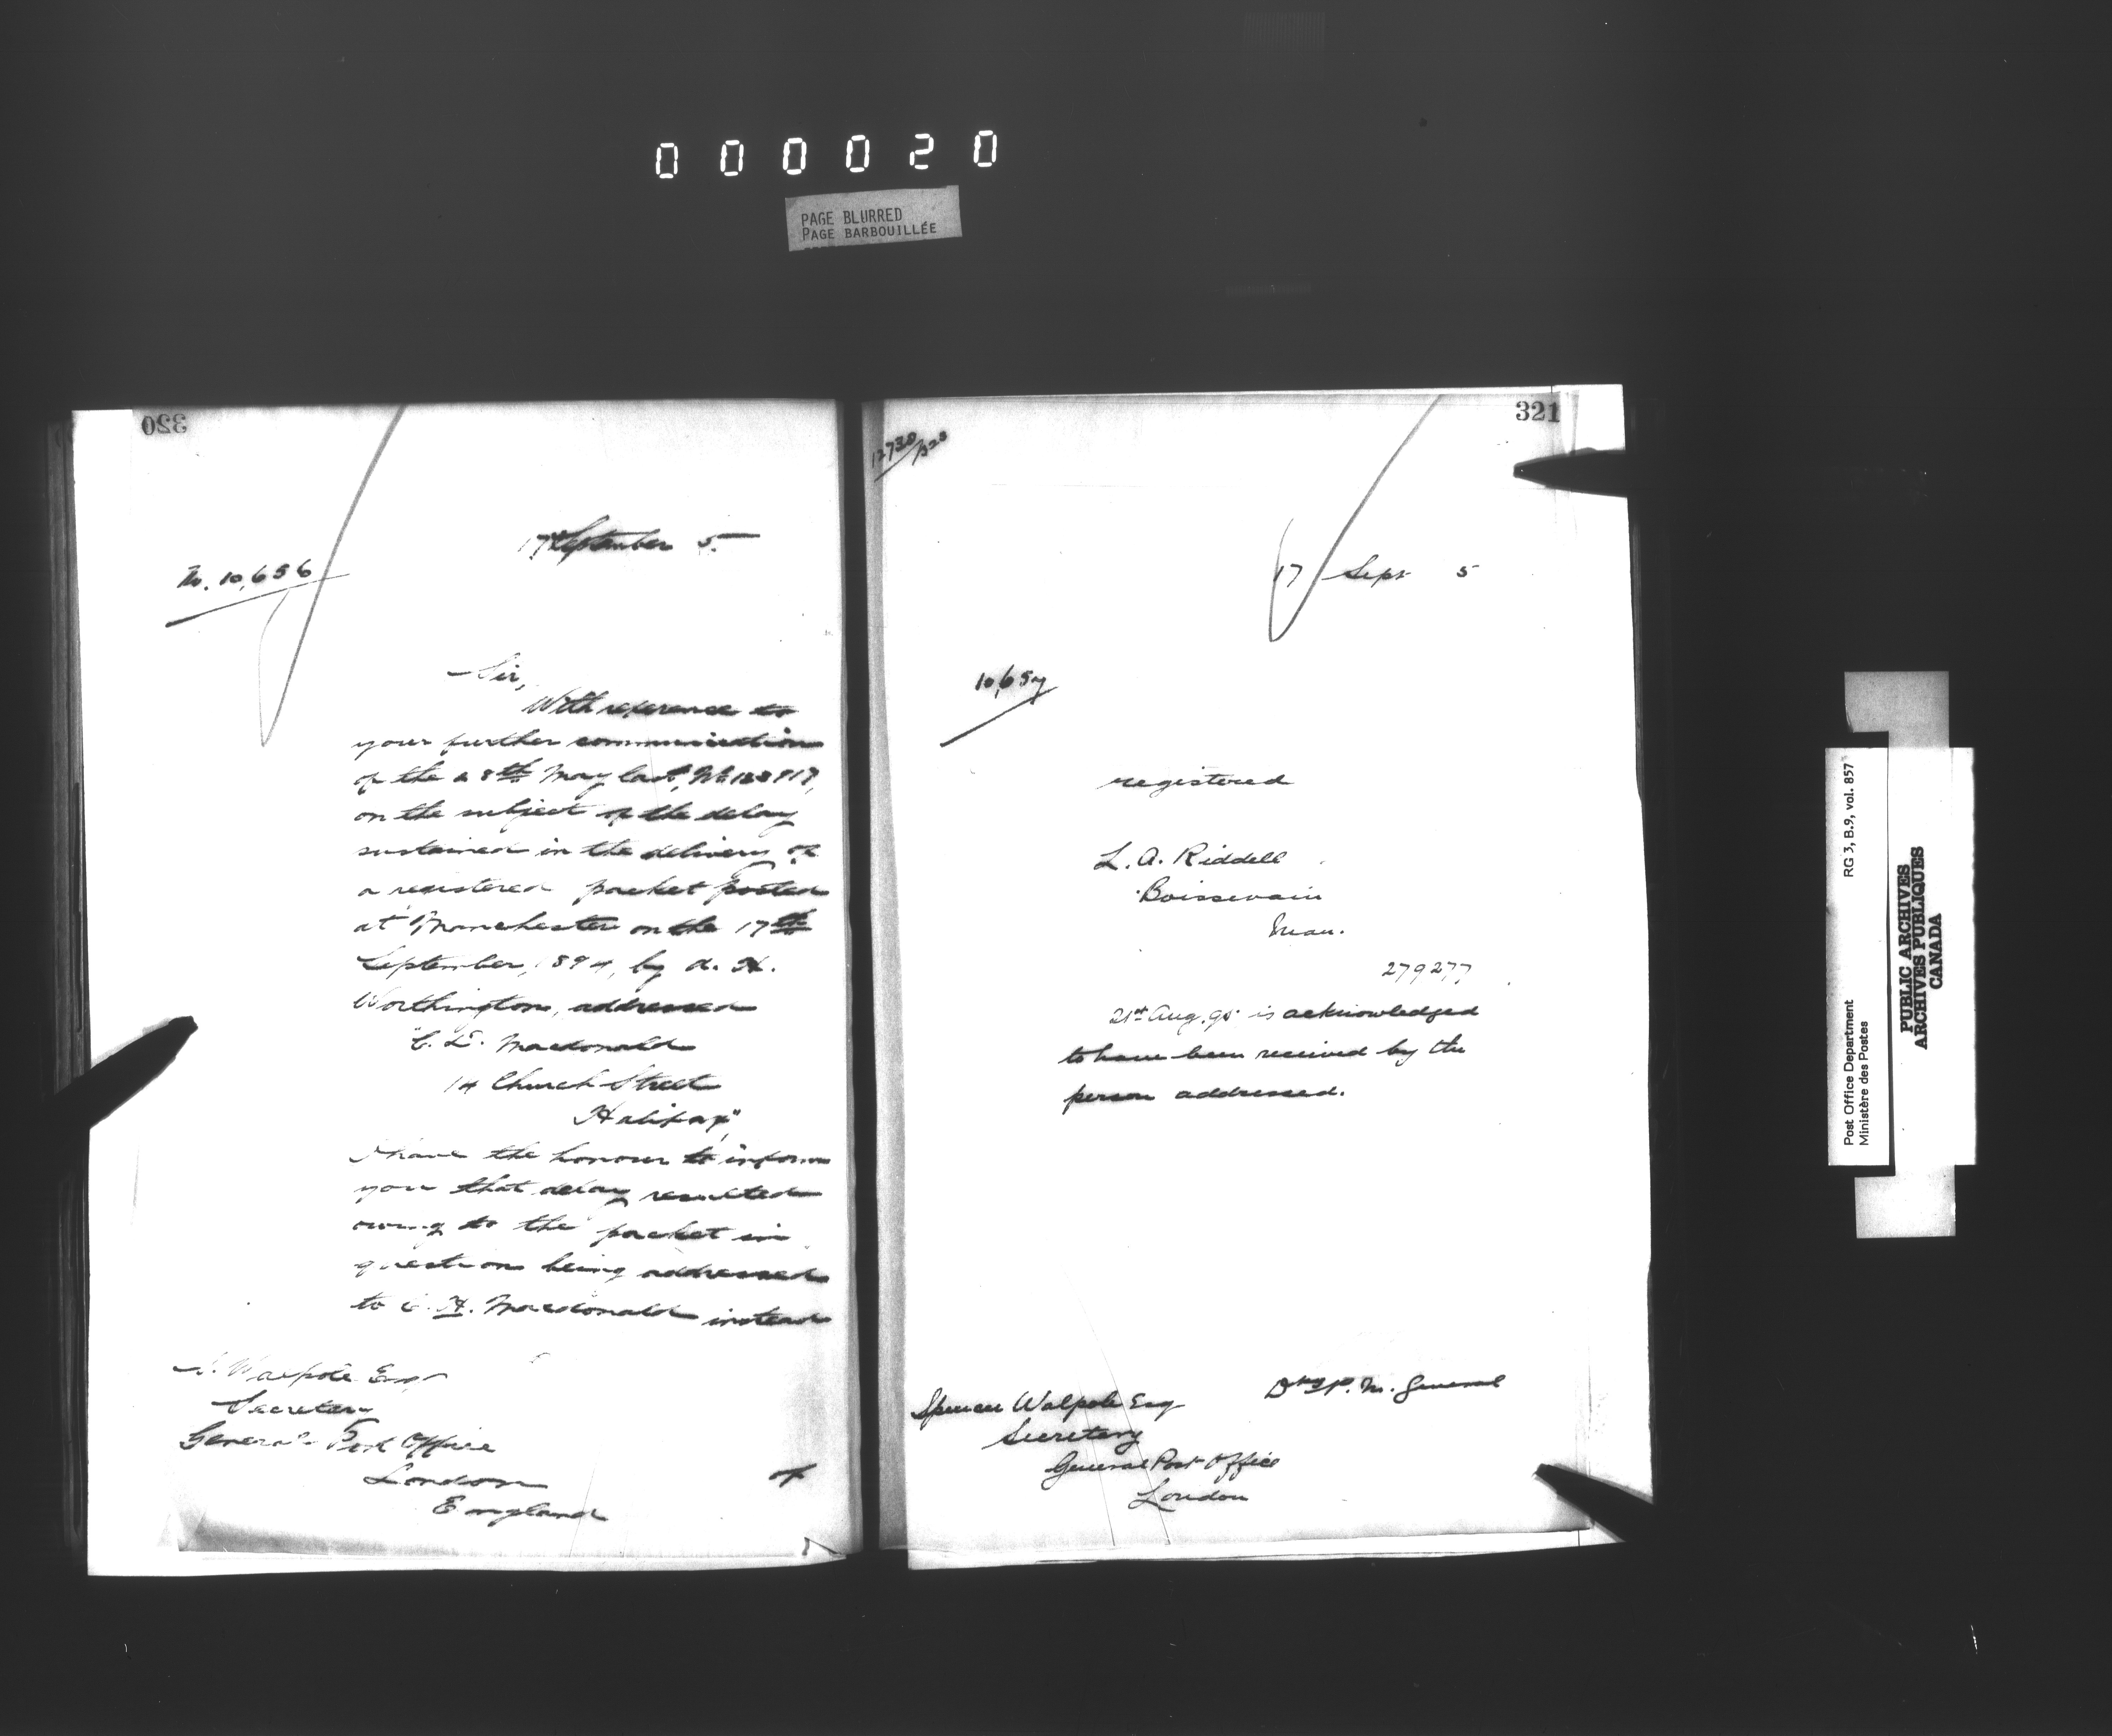 000020
PAGE BLURRED
PAGE BARBOUILLÉE
320
17th September 5.
No. 10,656
Sir,
With reference to
your further communication
of the 28th May last, No.
on the subject of the delay
sustained in the delivery of
a registered packet posted
at Manchester on the 17th
September, 1894, by A. H.
Worthington, addressed
"C. L. Macdonald
14 Church Street
Halifax",
I have the honour to inform
you that delay resulted
owing to the packet in
question being addressed
to C. H. Macdonald instead
S. Walpole Esqr
Secretary
General Post Office
London
England
of
321
12730/
17 Sept 5
10,657
registered
L. A. Riddell
Boissevain
Man.
279277
21st Aug. 95 is acknowledged
to have been received by the
person addressed.
Dty P. M. General
Spencer Walpole Esq
Secretary
General Post Office
London
RG 3, B.9, vol. 857
Post Office Department
Ministère des Postes
PUBLIC ARCHIVES
ARCHIVES PUBLIQUES
CANADA